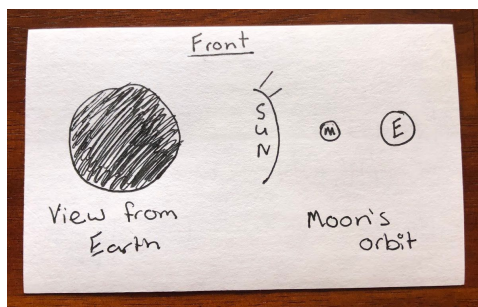 Front
SUN
M
E
View from
Earth
Moon's
orbit